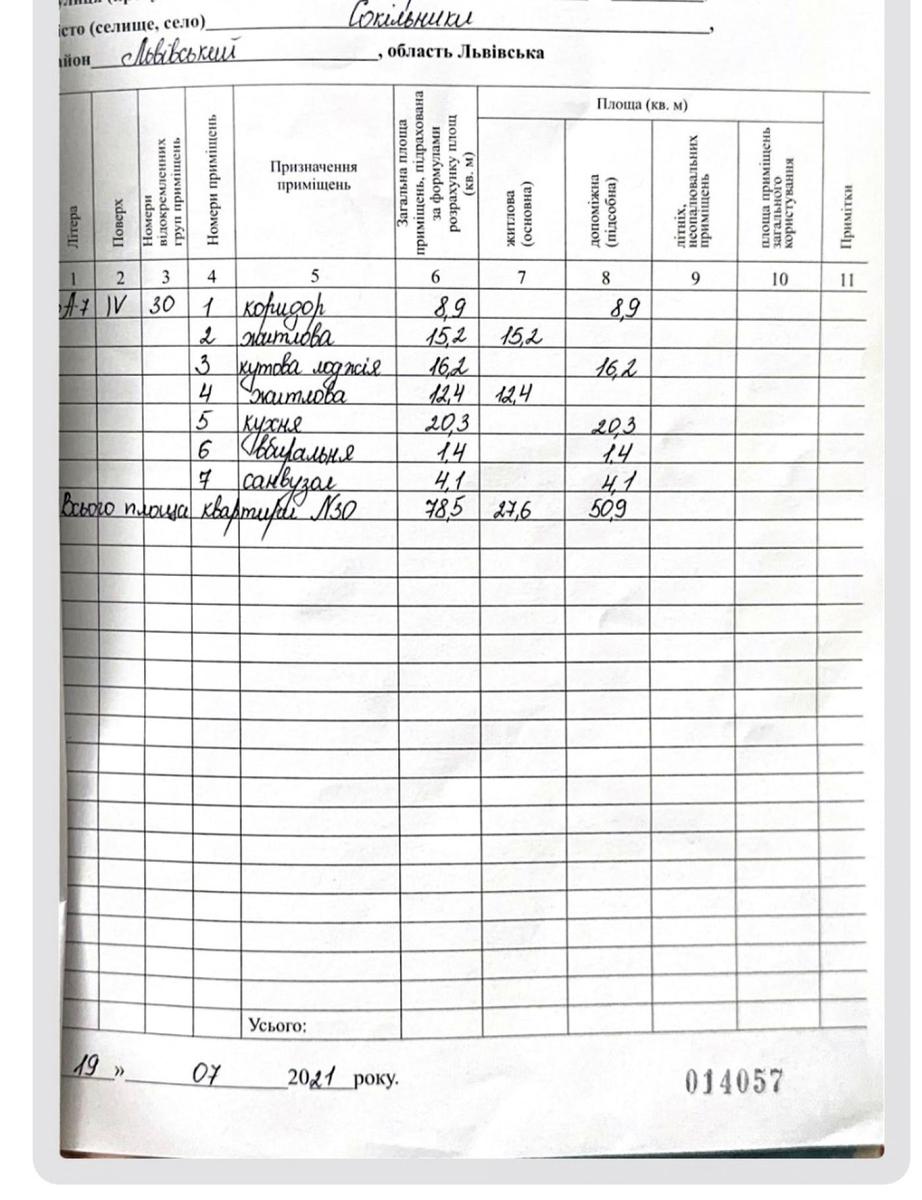 істо (селище, село) Сокільники,
йон Львівський, область Львівська
Літера
Поверх
Номери відокремленних груп приміщень
Номери приміщень
Призначення приміщень
Загальна площа приміщень, підрахована за формулами розрахунку площ (кв. м)
Площа (кв. м)
житлова (основна)
допоміжна (підсобна)
літніх, неопалювальних приміщень
площа приміщень загального користування
Примітки
1 2 3 4 5 6 7 8 9 10 11
А-7 IV 30 1 коридор 8,9 8,9
2 житлова 15,2 15,2
3 кутова лоджія 16,2 16,2
4 житлова 12,4 12,4
5 кухня 20,3 20,3
6 вбиральня 1,4 1,4
7 санвузол 4,1 4,1
Всього площа квартири N30 78,5 27,6 50,9
Усього:
19 » 07 2021 року.
014057